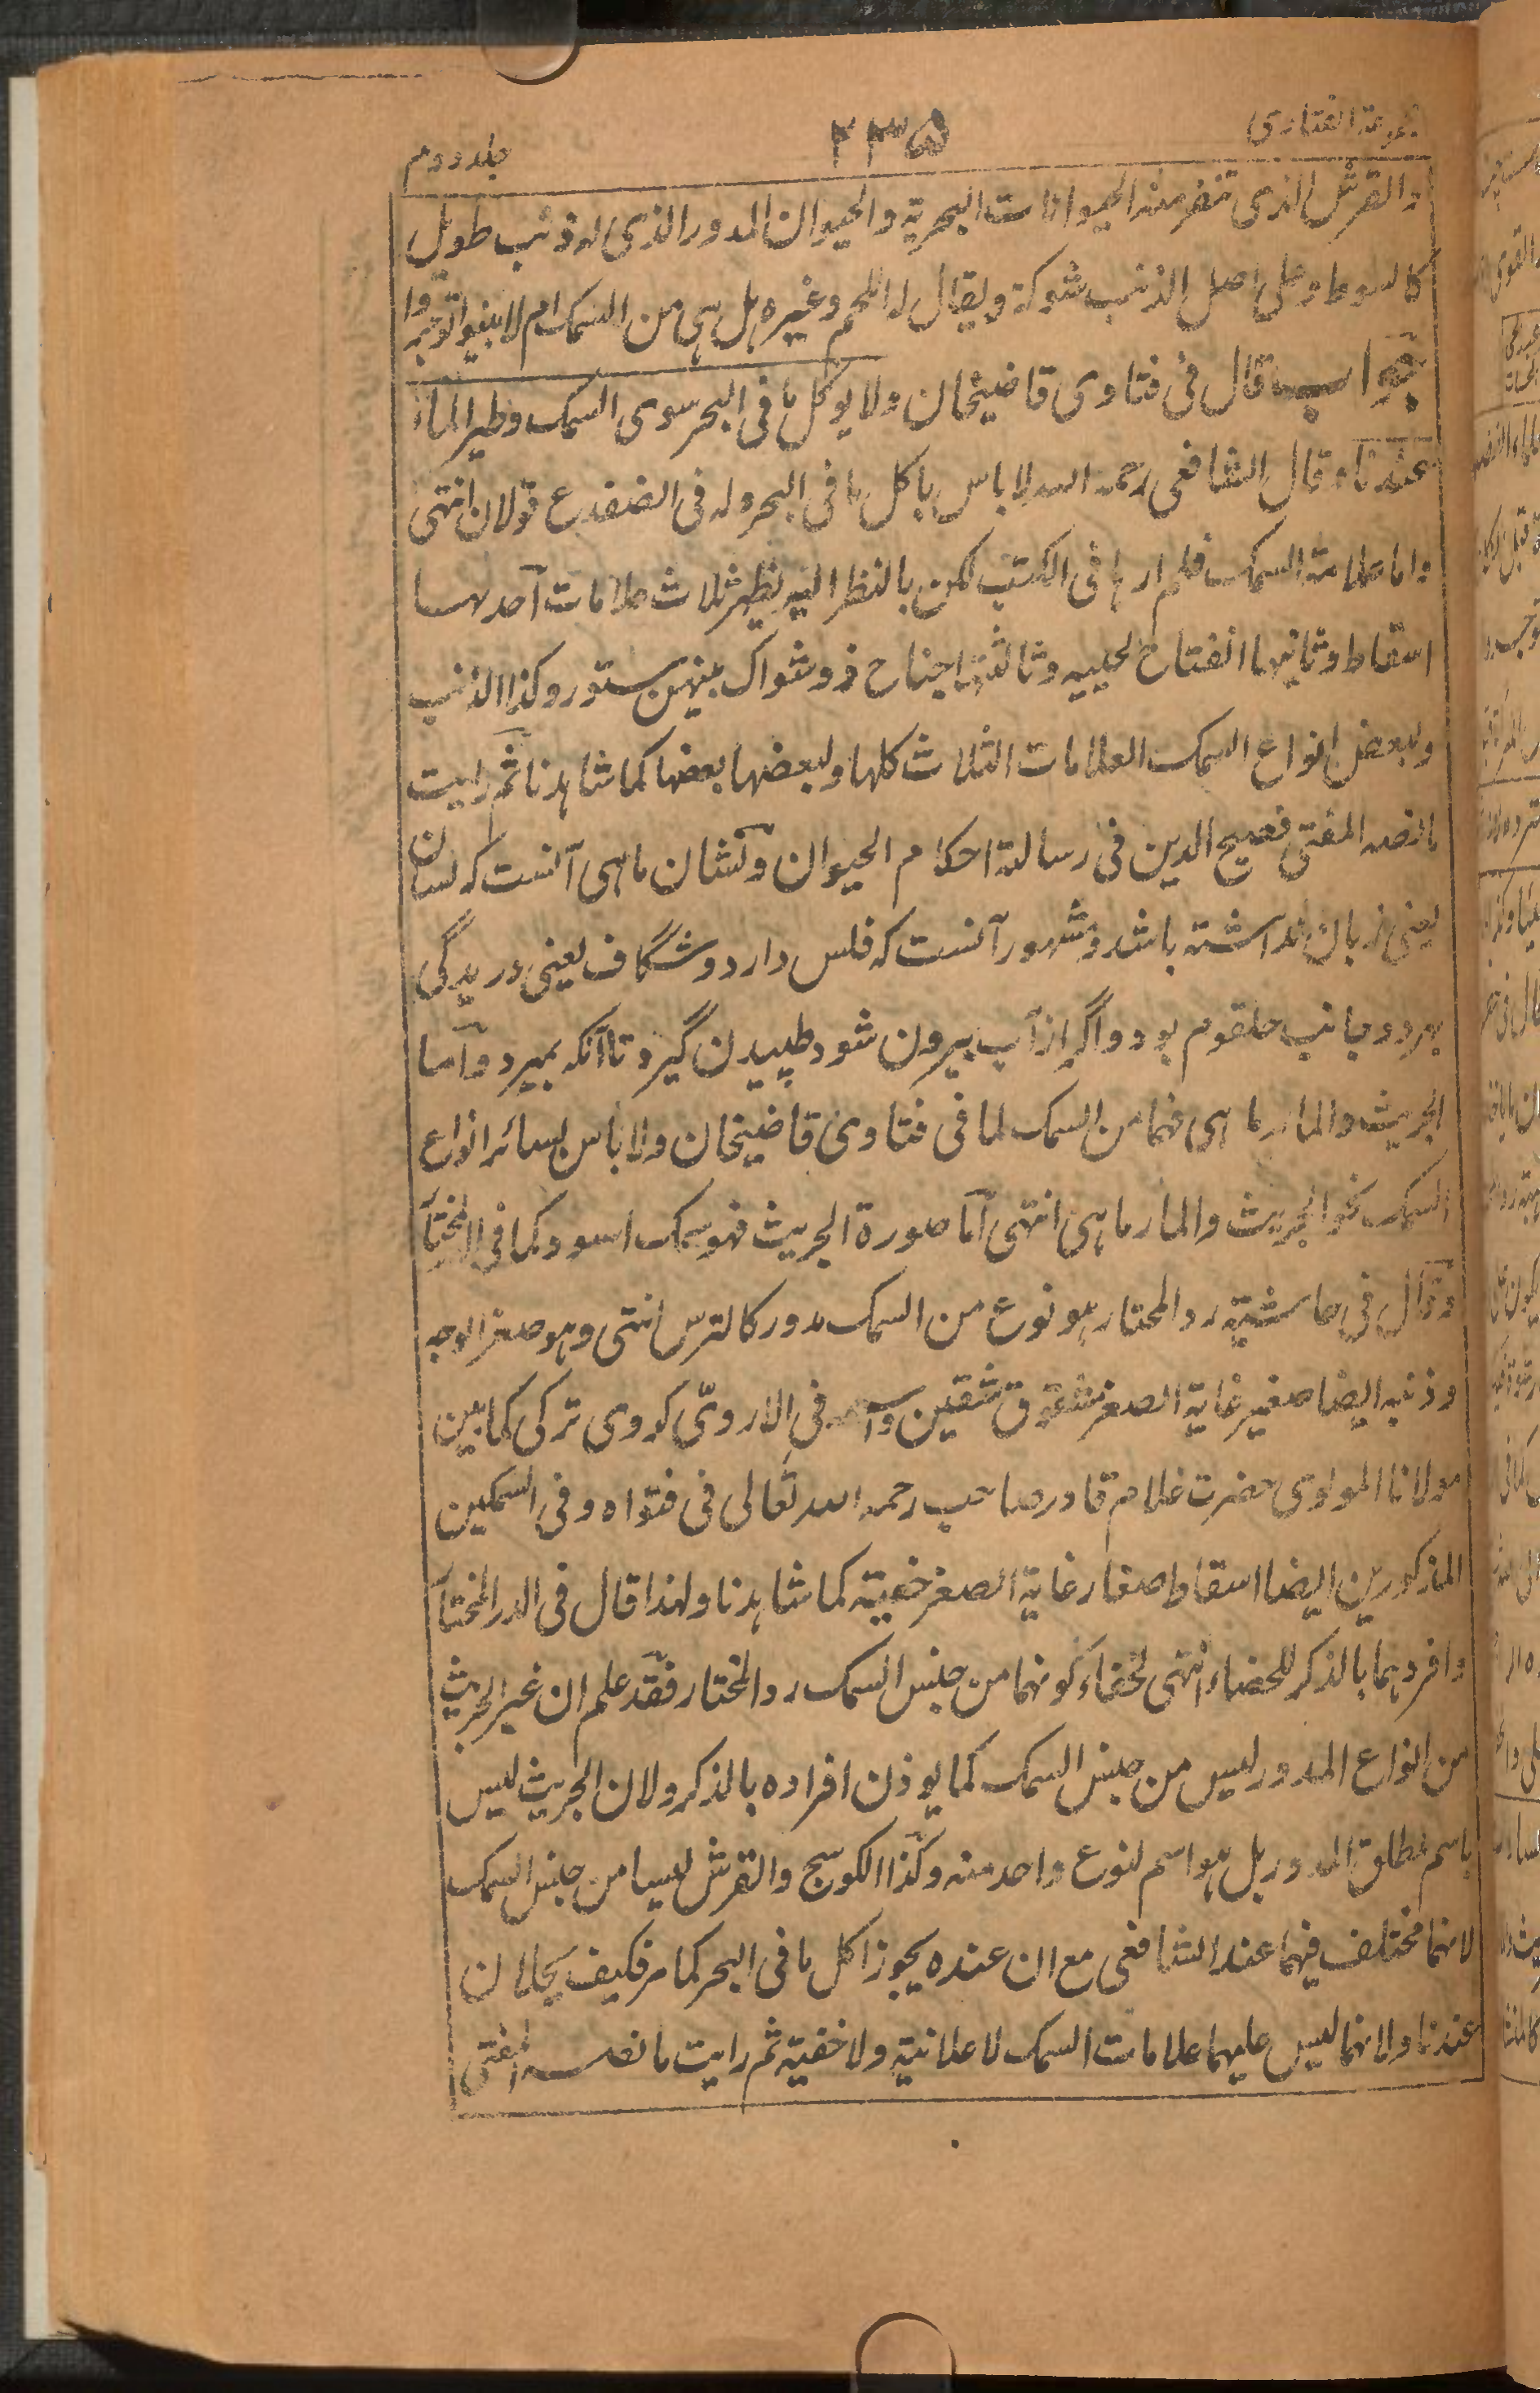 الفتاوی
۲۳۵
جلد دوم
والقرش الذی تنفر منه الحیوانات البحریة والحیوان المدور الذی له ذنب طویل
کالسوط وعلی اصل الذنب شوکة ویقال له اللحم وغیره هل هی من السمک ام لا بینوا توجروا
جواب قال فی فتاوی قاضیخان ولا یوکل ما فی البحر سوی السمک وطیر الماء
عندنا وقال الشافعی رحمه الله لا باس باکل ما فی البحر وله فی الضفدع قولان انتهی
واما علامة السمک فلم ارها فی الکتب لکن بالنظر الیه یظهر ثلاث علامات آحدها
اسقاط وثانیها انفتاح لحییه وثالثها جناح ذو شواک بینهن ستور وکذا الذنب
ولبعض انواع السمک العلامات الثلاث کلها ولبعضها بعضها کما شاهدنا ثم رایت
ما نصه المفتی فصیح الدین فی رسالة احکام الحیوان ونشان ماهی آنست که لسان
یعنی زبان نداشته باشد ومشهور آنست که فلس دارد وشگاف یعنی دریدگی
بهر دو جانب حلقوم بود واگر از آب بیرون شود طپیدن گیرد تا آنکه بمیرد وآما
الجریث والمارماهی فهما من السمک لما فی فتاوی قاضیخان ولا باس بسائر انواع
السمک نحو الجریث والمارماهی انتهی آما صورة الجریث فهو سمک اسود کما فی الدر المختآ
وقال فی حاشیته رد المحتار هو نوع من السمک مدور کالترس انتهی وهو صغیر الوجه
وذنبه ایضا صغیر غایة الصغر مشقوق شقین و فی الاروی کوروی ترکی کما بین
مولانا المولوی حضرت غلام قادر صاحب رحمه الله تعالی فی فتواه وفی السمکین
المذکورین ایضا اسقاط صغار غایة الصغر خفیة کما شاهدنا ولهذا قال فی الدر المختآ
وافردهما بالذکر للخفاء انتهی لخفاء کونهما من جنس السمک رد المختار فقد علم ان غیر الجریث
من انواع المدور لیس من جنس السمک کما یوذن افراده بالذکر ولان الجریث لیس
باسم مطلق المدور بل هو اسم لنوع واحد منه وکذا الکوسج والقرش لیسا من جنس السمک
لانهما مختلف فیهما عند الشافعی مع ان عنده یجوز اکل ما فی البحر کما مر فکیف یحلان
عندنا ولانهما لیس علیهما علامات السمک لا علانیة ولا خفیة ثم رایت ما نصه المفتی